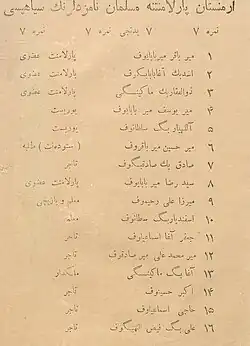 ارمنستان پارلامنتنه مسلمان نامزدلرنك سیاهیسی
نمره ۷ ۷ یدنجی ۷ نمره ۷
۱ میر باقر میربابایوف پارلامنت عضوی
۲ اسدبك آقابابابكوف پارلامنت عضوی
۳ ذوالفقاربك ماكینسكی پارلامنت عضوی
۴ میر یوسف میر بابایوف یوریست
۵ بك سلطانوف یوریست
۶ میر حسین میر باقروف (ستودەنت) طلبه
۷ صادق بك صادقبكوف تاجر
۸ سید رضا میر بابایوف پارلامنت عضوی
۹ میرزا علی رحیموف معلم و یازیچی
۱۰ اسفندیاربك سلطانوف معلم
۱۱ جعفر آقا اسماعیلوف تاجر
۱۲ میر محمد علی میر صادقوف تاجر
۱۳ آقا بك ماكینسكی ملكدار
۱۴ اكبر حسینوف تاجر
۱۵ حاجی اسماعیلوف تاجر
۱۶ علی بك تاجر